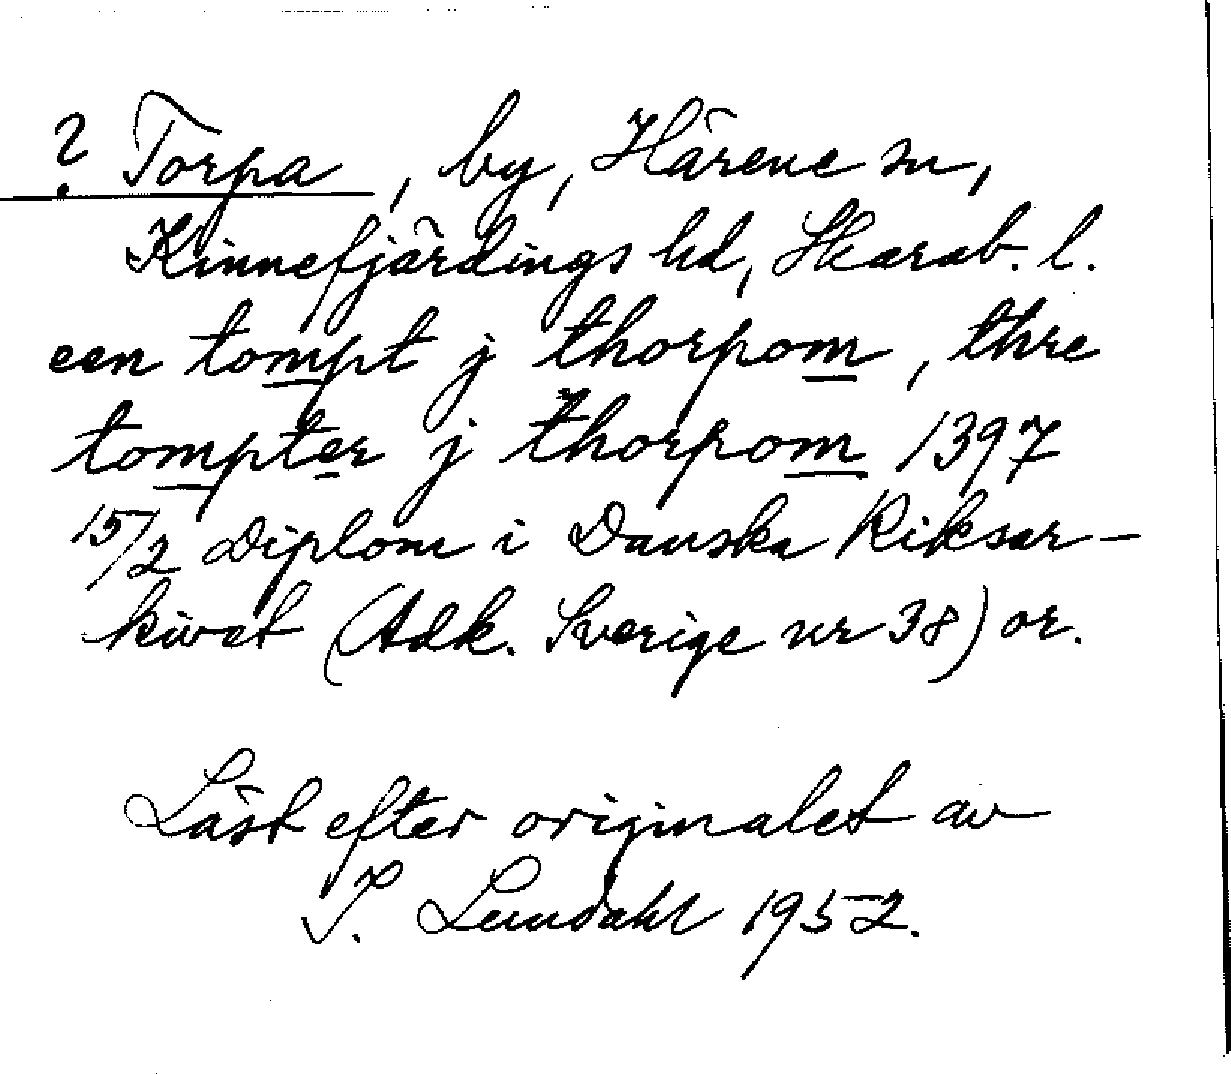 ? Torpa, by, Härene sn,
Kinnefjärdings hd, Skarab. l.
een tompt j thorpom, thre
tompter j thorpom 1397
15/2 Diplom i Danska Riksar-
kivet (Adk. Sverige nr 38) or.
Läst efter originalet av
I. Lundahl 1952.